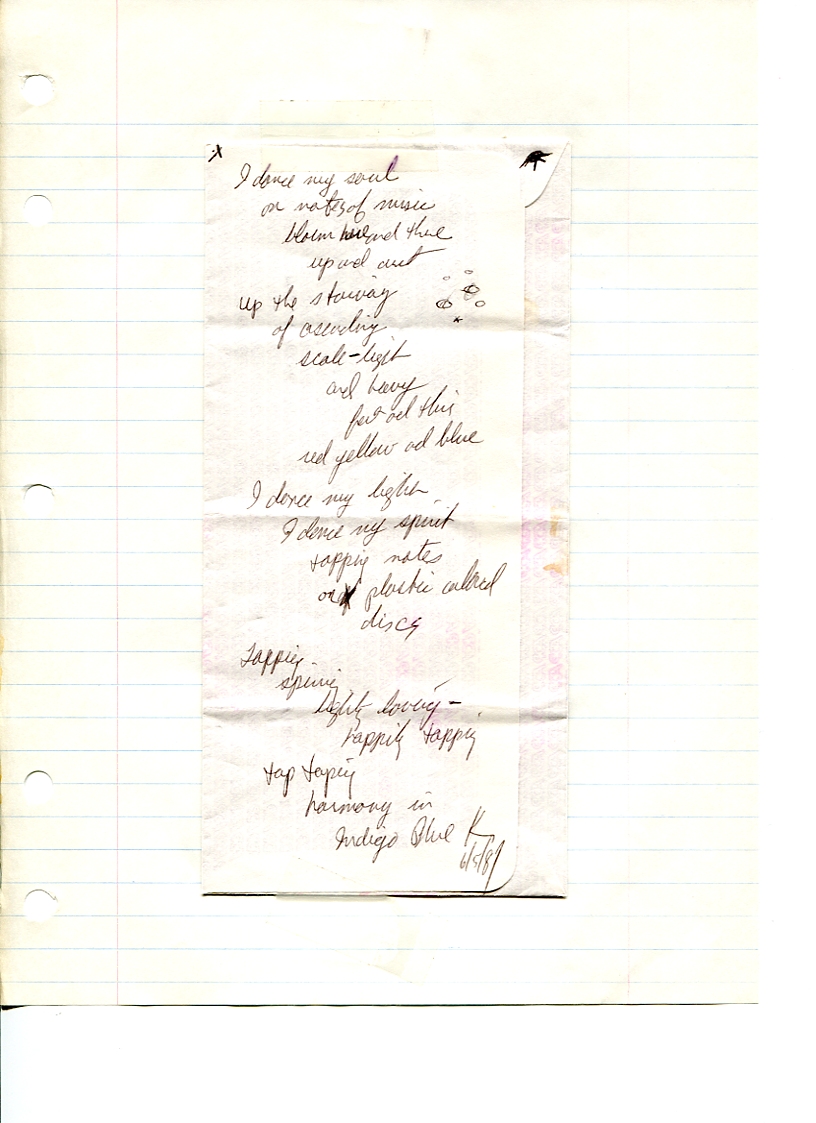 I dance my soul
on notes of music
bloom here and there
up and out
up the stairway
of ascending
scale-light
and heavy
fat and thin
red yellow and blue
I dance my light
I dance my spirit
tapping notes
on plastic colored
discs
Tapping
lightly loving-
happily tapping
tap taping
harmony in
Indigo Blue K